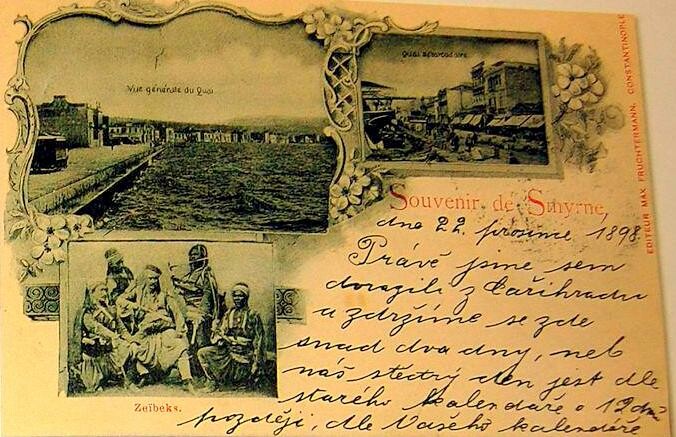 Vue générale du Quai
Quai débarcadaire
EDITEUR MAX FRUCHTERMANN, CONSTANTINOPLE
Souvenir de Smyrne,
dne 22. prosince 1898
Právě jsme sem
dorazili z Cařihradu
a zdržíme se zde
snad dva dny, neb
náš štědrý den jest dle
starého kalendáře o 12 dní
později, dle Vašeho kalendáře
Zeïbeks.